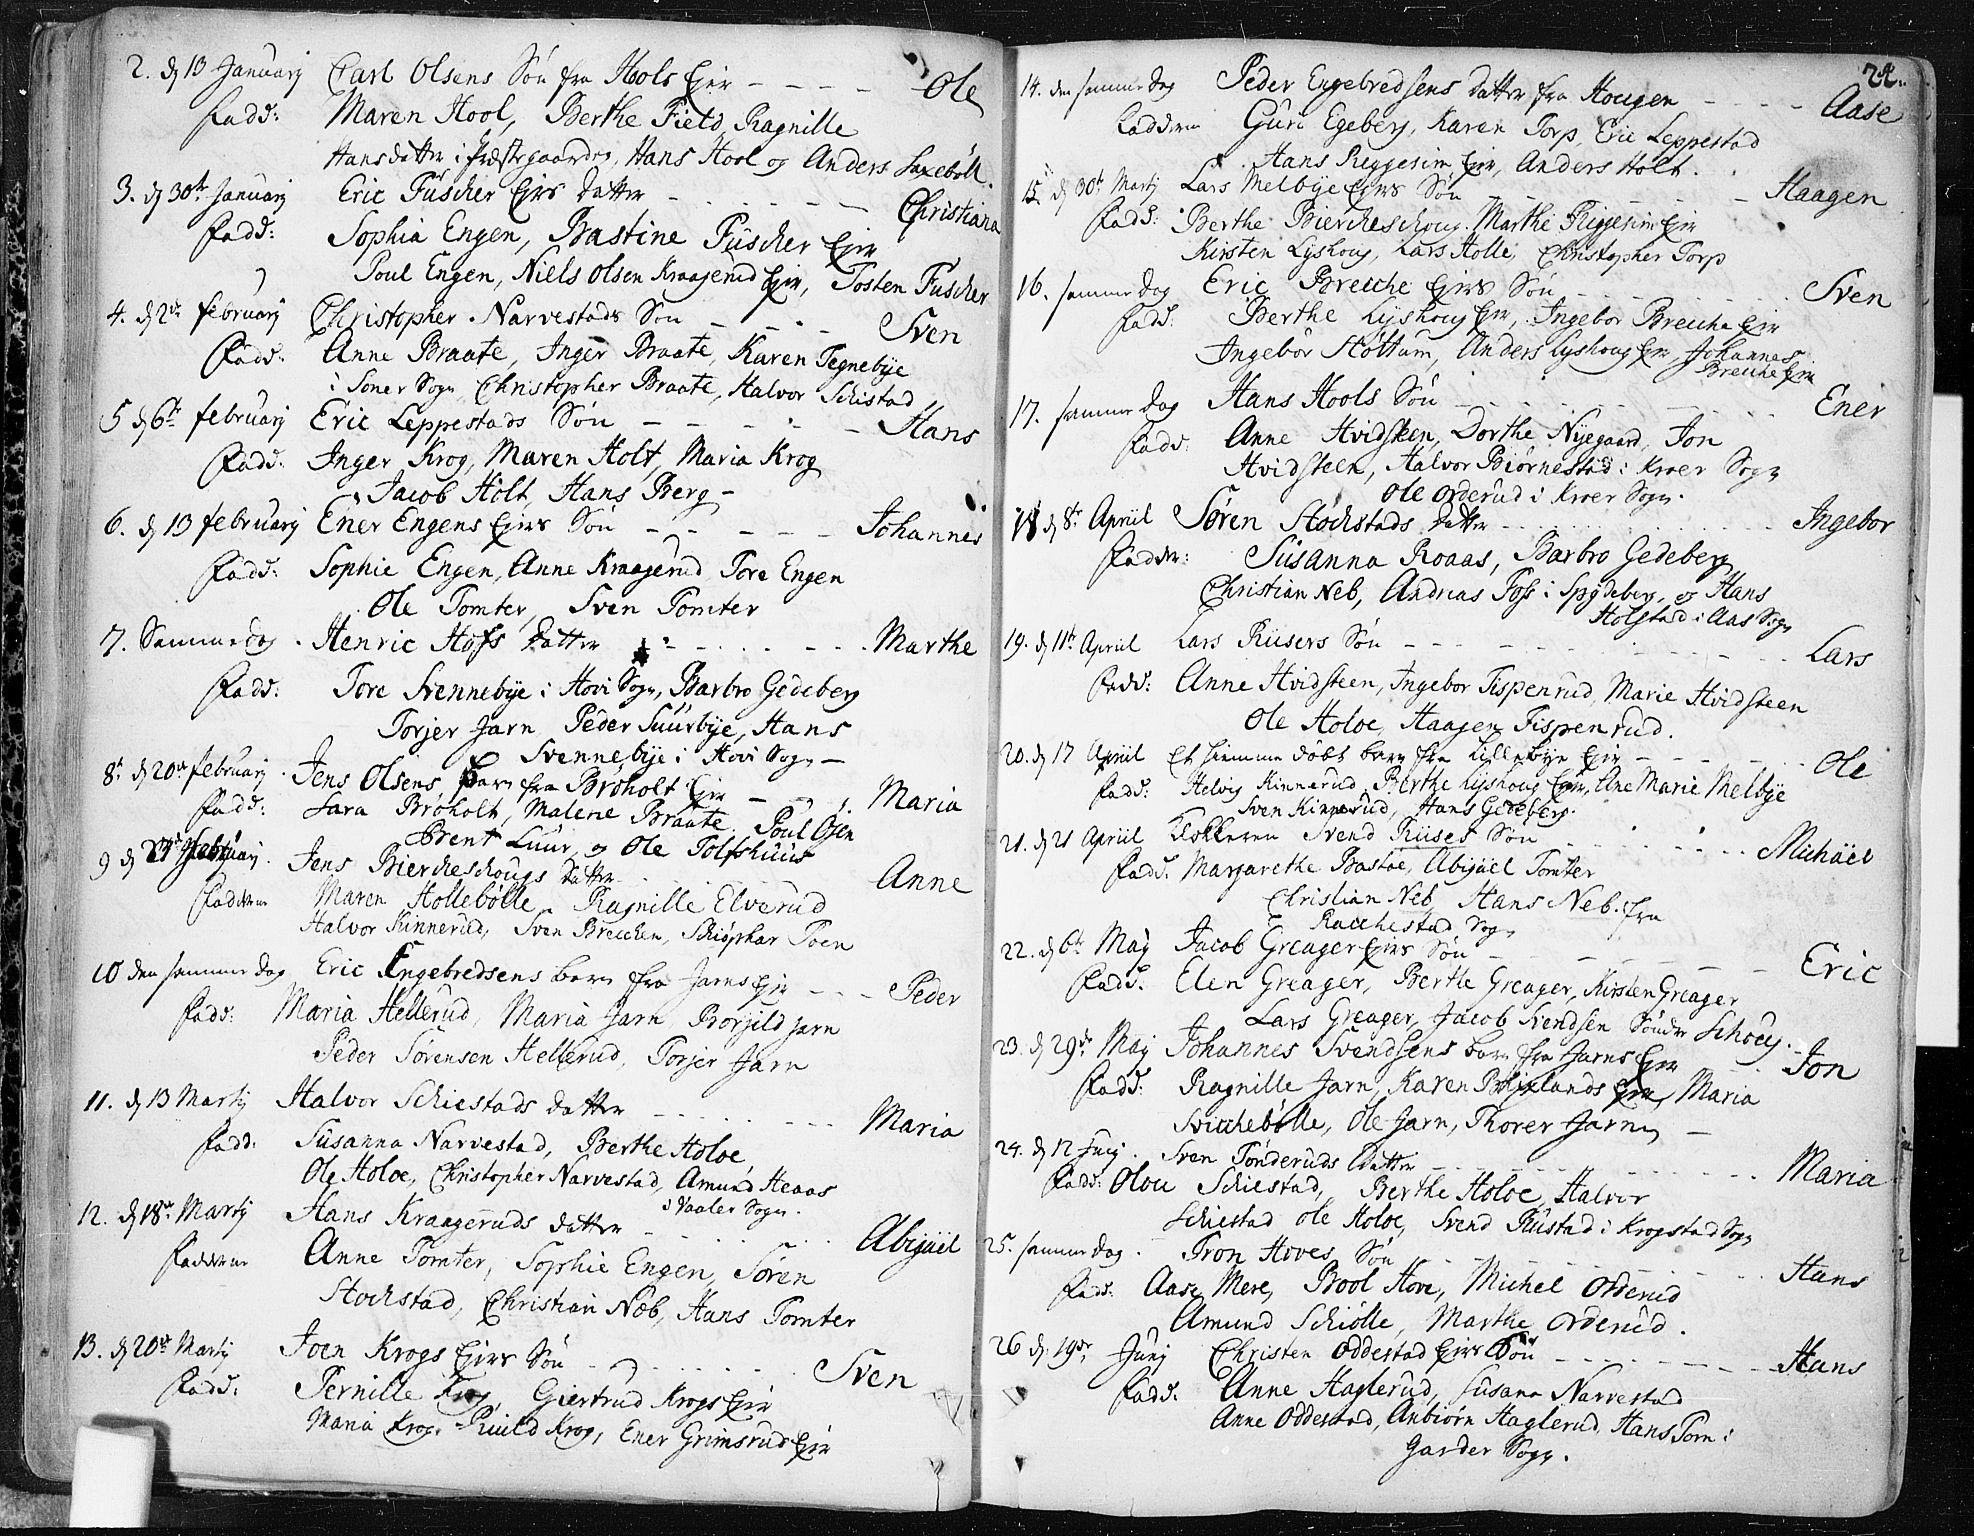 2. d 13 Januarj Carl Olsens Søn fra Hools Ejer - - - - Ole
Fadd: Maren Hool, Berthe Field, Ragnille
Hansdatter i Præstegaarden, Hans Hool og Anders Saxebøll.
3. d 30te Januarj Eric Fuscher Ejers Datter - - - - - Christiana
Fadd: Sophia Engen, Bastine Fuscher Ejer
Poul Engen, Niels Olsen Kraagerud Ejer, Tosten Fuscher
4. d 2de februarj Christopher Narvestads Søn - - - Sven
Fadd: Anne Braate, Inger Braate, Karen Tegnebye
i Soner Sogn, Christopher Braate, Halvor Schistad
5 d 6te februarj Eric Leppestads Søn - - - - - Hans
Fadd: Inger Krog, Maren Holt, Maria Krog
Jacob Holt, Hans Berg -
6. d 13 februarj Ener Engens Ejers Søn - - - - - Johannes
Fadd: Sophie Engen, Anne Kraagerud, Tore Engen
Ole Tomter, Sven Tomter
7. Samme dag. Henric Hofs Datter - - - - - Marthe
Fadd: Tore Svennebye i Hovi Sogn, Barbro Gedeberg
Torjer Jarn Peder Suurbye, Hans
Svennebye i Hovi Sogn -
8. d 20de februarj. Jens Olsens barn fra Broholt Ejer - - Maria
Fadd: Sara Broholt, Malene Braate, Poul Osen
Brent Luur, og Ole Tolfshuus
9 d 27 februarj. Jens Biercheschougs Datter - - - Anne
Fadderne Maren Hollebølle, Ragnille Elverud
Halvor Kinnerud, Sven Breichen, Schiøphar Toen
10 den samme Dag Eric Engebredsens barn fra Jarns Ejer - - - Peder
Fadd: Maria Hellerud, Maria Jarn, Borgild Jarn
Peder Sørensen Hellerud, Torjer Jarn
11. d 13 Martj Halvor Schiestads Datter - - - - - Maria
Fadd: Susanna Narvestad, Berthe Holoe,
Ole Holoe, Christopher Narvestad, Amund Heaas
i Vaaler Sogn.
12. d 18de Martj Hans Kraageruds Datter - - - - - Abigael
Fadderne Anne Tomter, Sophie Engen, Søren
Stochstad, Christian Neb, Hans Tomter
13. d 20de Martj Joen Krogs Ejers Søn - - - - - Sven
Fadd: Pernille Krog Giertrud Krogs Ejer
Maria Krog, Ruuld Krog, Ener Grimsrud Ejer
22.
14. den samme Dag Peder Engebredsens Datter fra Hougen - - - - Aase
Fadderne Guri Egeberg, Karen Torp, Eric Leppestad
Hans Reggesim Ejer, Anders Holt.
15 d 30te Martj Lars Melbye Ejers Søn - - - - - Haagen
Fadd: Berthe Biercheschoug, Marthe Riggesim Ejer
Kirsten Lyshoug, Lars Holle, Christopher Torp
16. samme Dag Eric Breiche Ejers Søn - - - - - Sven
Fadd: Berthe Lyshoug Ejer, Ingebor Breiche Ejer
Ingebor Hottum, Anders Lyshoug Ejer, Johannes
Breiche Ejer
17. samme Dag Hans Hools Søn - - - - - Ener
Fadd: Anne Hvidsteen, Dorthe Nyegaard, Jon
Hvidsteen, Halvor Biørnestad i Kroer Sogn
Ole Orderud i Kroer Sogn.
18 d 8de Apriil Søren Stochstads Datter - - - - - Ingebor
Fadder: Susanna Roaas, Barbro Gedeberg
Christian Neb, Andreas Foss i Spydeberg, og Hans
Holstad i Aas Sogn
19. d 11te Apriil Lars Riisers Søn - - - - - Lars
Fadd: Anne Hvidsteen, Ingebor Tispenrud, Marie Hvidsteen
Ole Holoe, Haagen Tispenrud.
20. d 17 Apriil Et hiemme døbt barn fra Lillebye Ejer - - - - - Ole
Fadd: Helvig Kinnerud, Berthe Lyshoug Ejer, Ane Marie Melbye
Sven Kinnerud, Hans Gedeberg.
21. d 21 Apriil Klokkeren Svend Riises Søn - - - - - Michael
Fadd. Margarethe Bastøe, Abigael Tomter
Christian Neb, Hans Neb fra
Racchestad Sogn
22. d 6te Maj Jacob Greager Ejers Søn - - - - - Eric
Fadd. Elen Greager, Berthe Greager, Kirsten Greager
Lars Greager, Jacob Svendsen Sønder Schoug.
23. d 29de Maj Johannes Svendsens barn fra Jarns Ejer - - - Jon
Fadd: Ragnille Jarn, Karen Brixlands Ejer, Maria
Svicchebølle, Ole Jarn, Thorer Jarn -
24. d 12 Junj. Sven Tønderuds Datter - - - - - Maria
Fadd: Olou Schiestad, Berthe Holoe, Halvor
Schiestad Ole Holoe, Svend Rustad i Krogstad Sogn
25. samme Dag. Tron Hoves Søn - - - - - Hans
Fadd: Aase Mere, Bool Hove, Michel Orderud
Amund Schiølle, Marthe Orderud.
26 d. 19de Junj Christen Oddestad Ejers Søn - - - - - Hans
Fadd: Anne Haglerud, Susana Narvestad
Anne Oddestad, Anbiørn Haglerud, Hans Torn i
Garder Sogn.